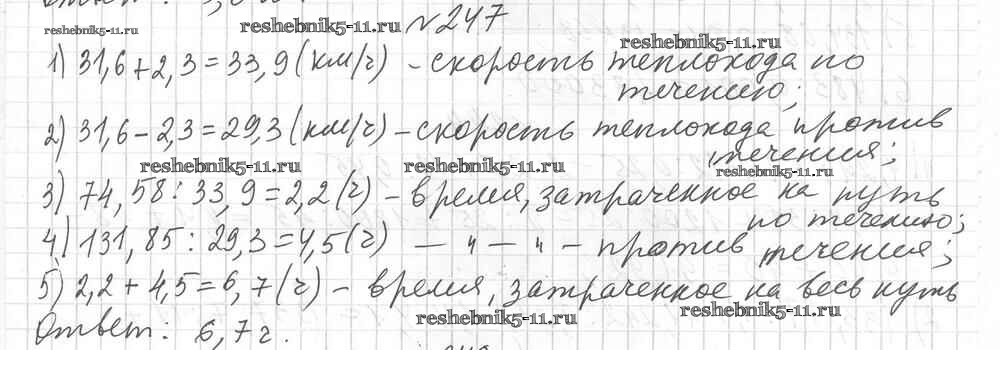 reshebnik5-11.ru reshebnik5-11.ru №247
reshebnik5-11.ru
1) 31,6+2,3=33,9(км/ч) - скорость теплохода по
течению;
2) 31,6-2,3=29,3(км/ч) - скорость теплохода против
течения;
reshebnik5-11.ru reshebnik5-11.ru reshebnik5-11.ru
3) 74,58:33,9=2,2(ч) - время, затраченное на путь
по течению;
4) 131,85:29,3=4,5(ч) — " — " — против течения;
5) 2,2+4,5=6,7(ч) - время, затраченное на весь путь
reshebnik5-11.ru reshebnik5-11.ru
Ответ: 6,7ч.